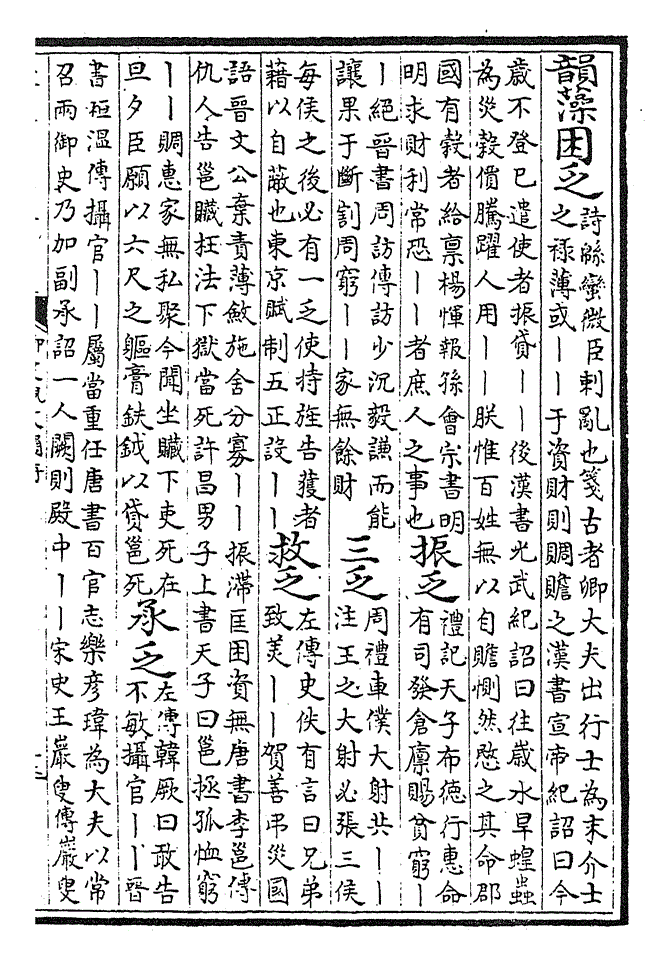 韻藻困乏
詩緜蠻微臣刺亂也箋古者卿大夫出行士為末介士
之祿薄或丨丨于資財則賙贍之漢書宣帝紀詔曰今
歲不登已遣使者振貸丨丨後漢書光武紀詔曰往歲水旱蝗蟲
為災穀價騰躍人用丨丨朕惟百姓無以自贍惻然愍之其命郡
國有穀者給稟楊惲報孫會宗書明
明求財利常恐丨丨者庶人之事也
振乏
禮記天子布德行惠命
有司發倉廩賜貧窮丨
丨絕晉書周訪傳訪少沉毅謙而能
讓果于斷割周窮丨丨家無餘財
三乏
周禮車僕大射共丨丨
注王之大射必張三侯
每侯之後必有一乏使持旌告獲者
藉以自蔽也東京賦制五正設丨丨
救乏
左傳史佚有言曰兄弟
致美丨丨賀善弔災國
語晉文公棄責薄斂施舍分寡丨丨振滯匡困資無唐書李邕傳
仇人告邕贓枉法下獄當死許昌男子上書天子曰邕拯孤恤窮
丨丨賙惠家無私聚今聞坐贓下吏死在
旦夕臣願以六尺之軀膏鈇鉞以貸邕死
承乏
左傳韓厥曰敢告
不敏攝官丨丨晉
書桓溫傳攝官丨丨屬當重任唐書百官志樂彥瑋為大夫以常
召兩御史乃加副承詔一人闕則殿中丨丨宋史王巖叟傳巖叟